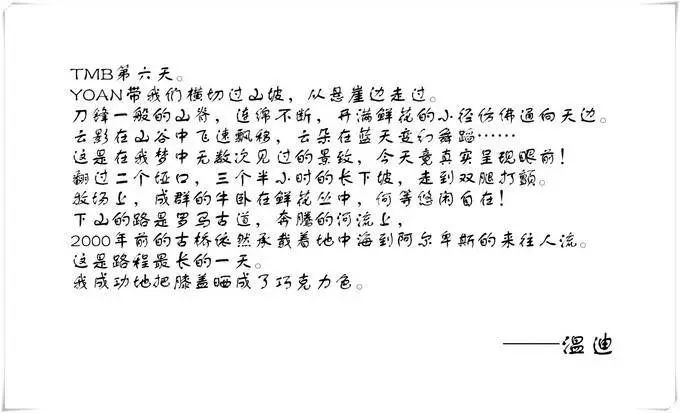 TMB第六天。
YOAN带我们横切过山坡，从悬崖边走过。
刀锋一般的山脊，连绵不断，开满鲜花的小径仿佛通向天边。
云影在山谷中飞速飘移，云朵在蓝天变幻舞蹈……
这是在我梦中无数次见过的景致，今天竟真实呈现眼前！
翻过二个垭口，三个半小时的长下坡，走到双腿打颤。
牧场上，成群的牛卧在鲜花丛中，何等悠闲自在！
下山的路是罗马古道，奔腾的河流上，
2000年前的古桥依然承载着地中海到阿尔卑斯的来往人流。
这是路程最长的一天。
我成功地把膝盖晒成了巧克力色。
——温迪